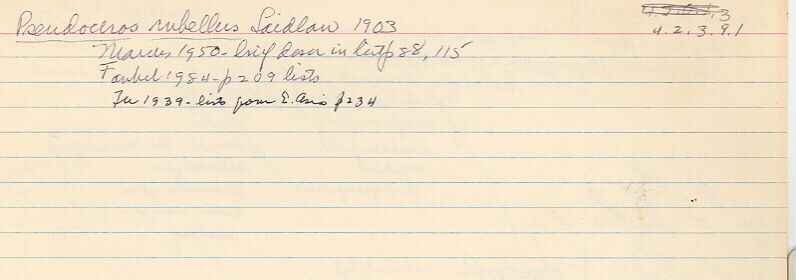 Pseudoceros rubellus Laidlaw 1903
4.2.3.9.1
Marcus 1950 - brief descr in key p 88, 115
Faubel 1984 - p 209 lists
Tu 1939 - lists from E. Asia p 234